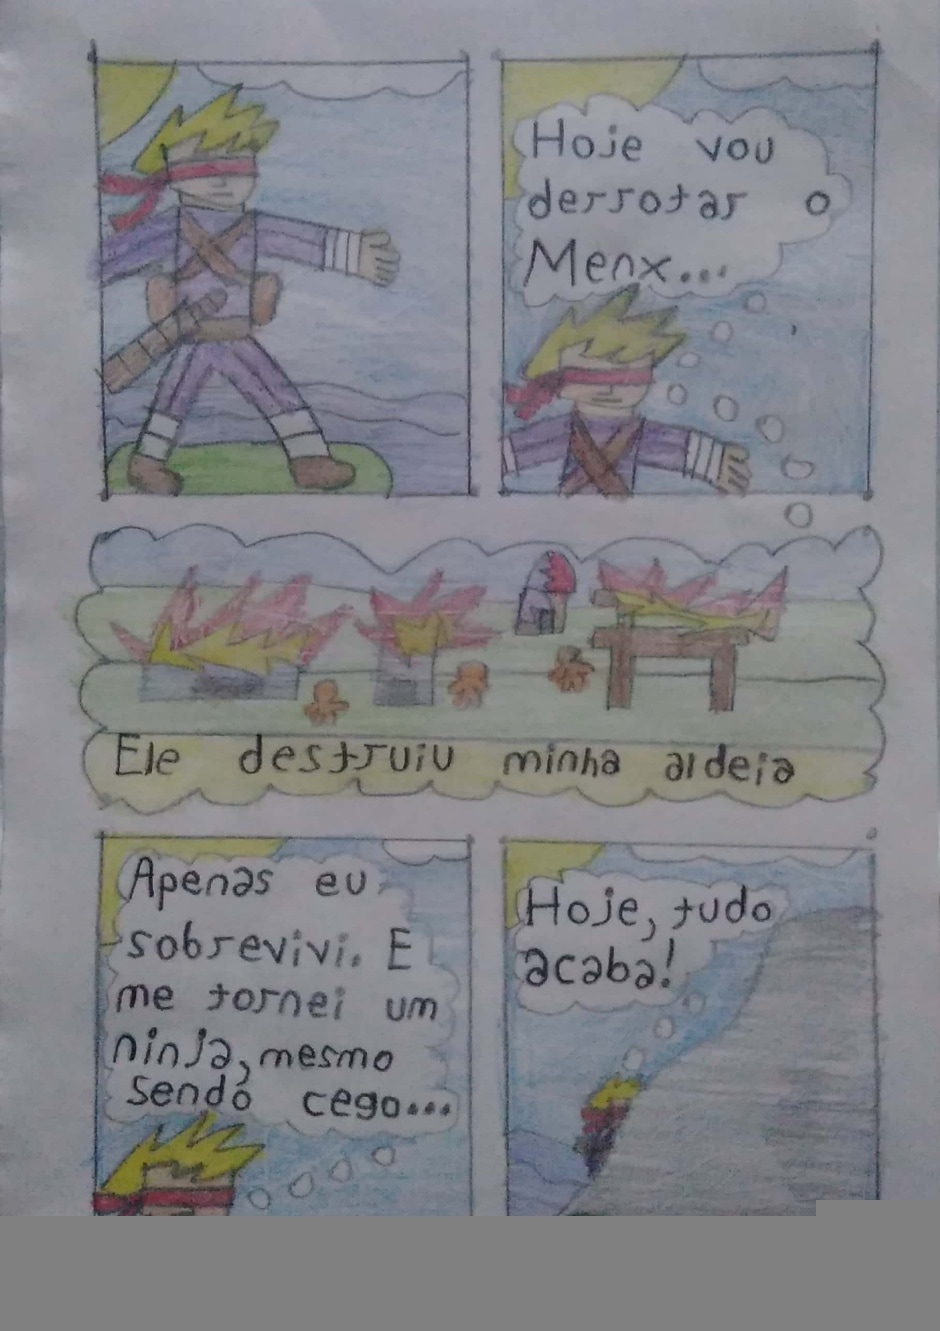 Hoje vou
derrotar o
Menx...
Ele destruiu minha aldeia
Apenas eu
sobrevivi. E
me tornei um
ninja, mesmo
sendo cego...
Hoje, tudo
acaba!